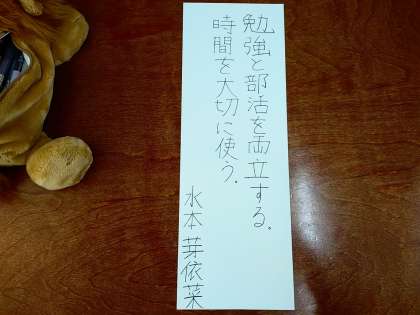 勉強と部活を両立する。
時間を大切に使う。
水本芽依菜